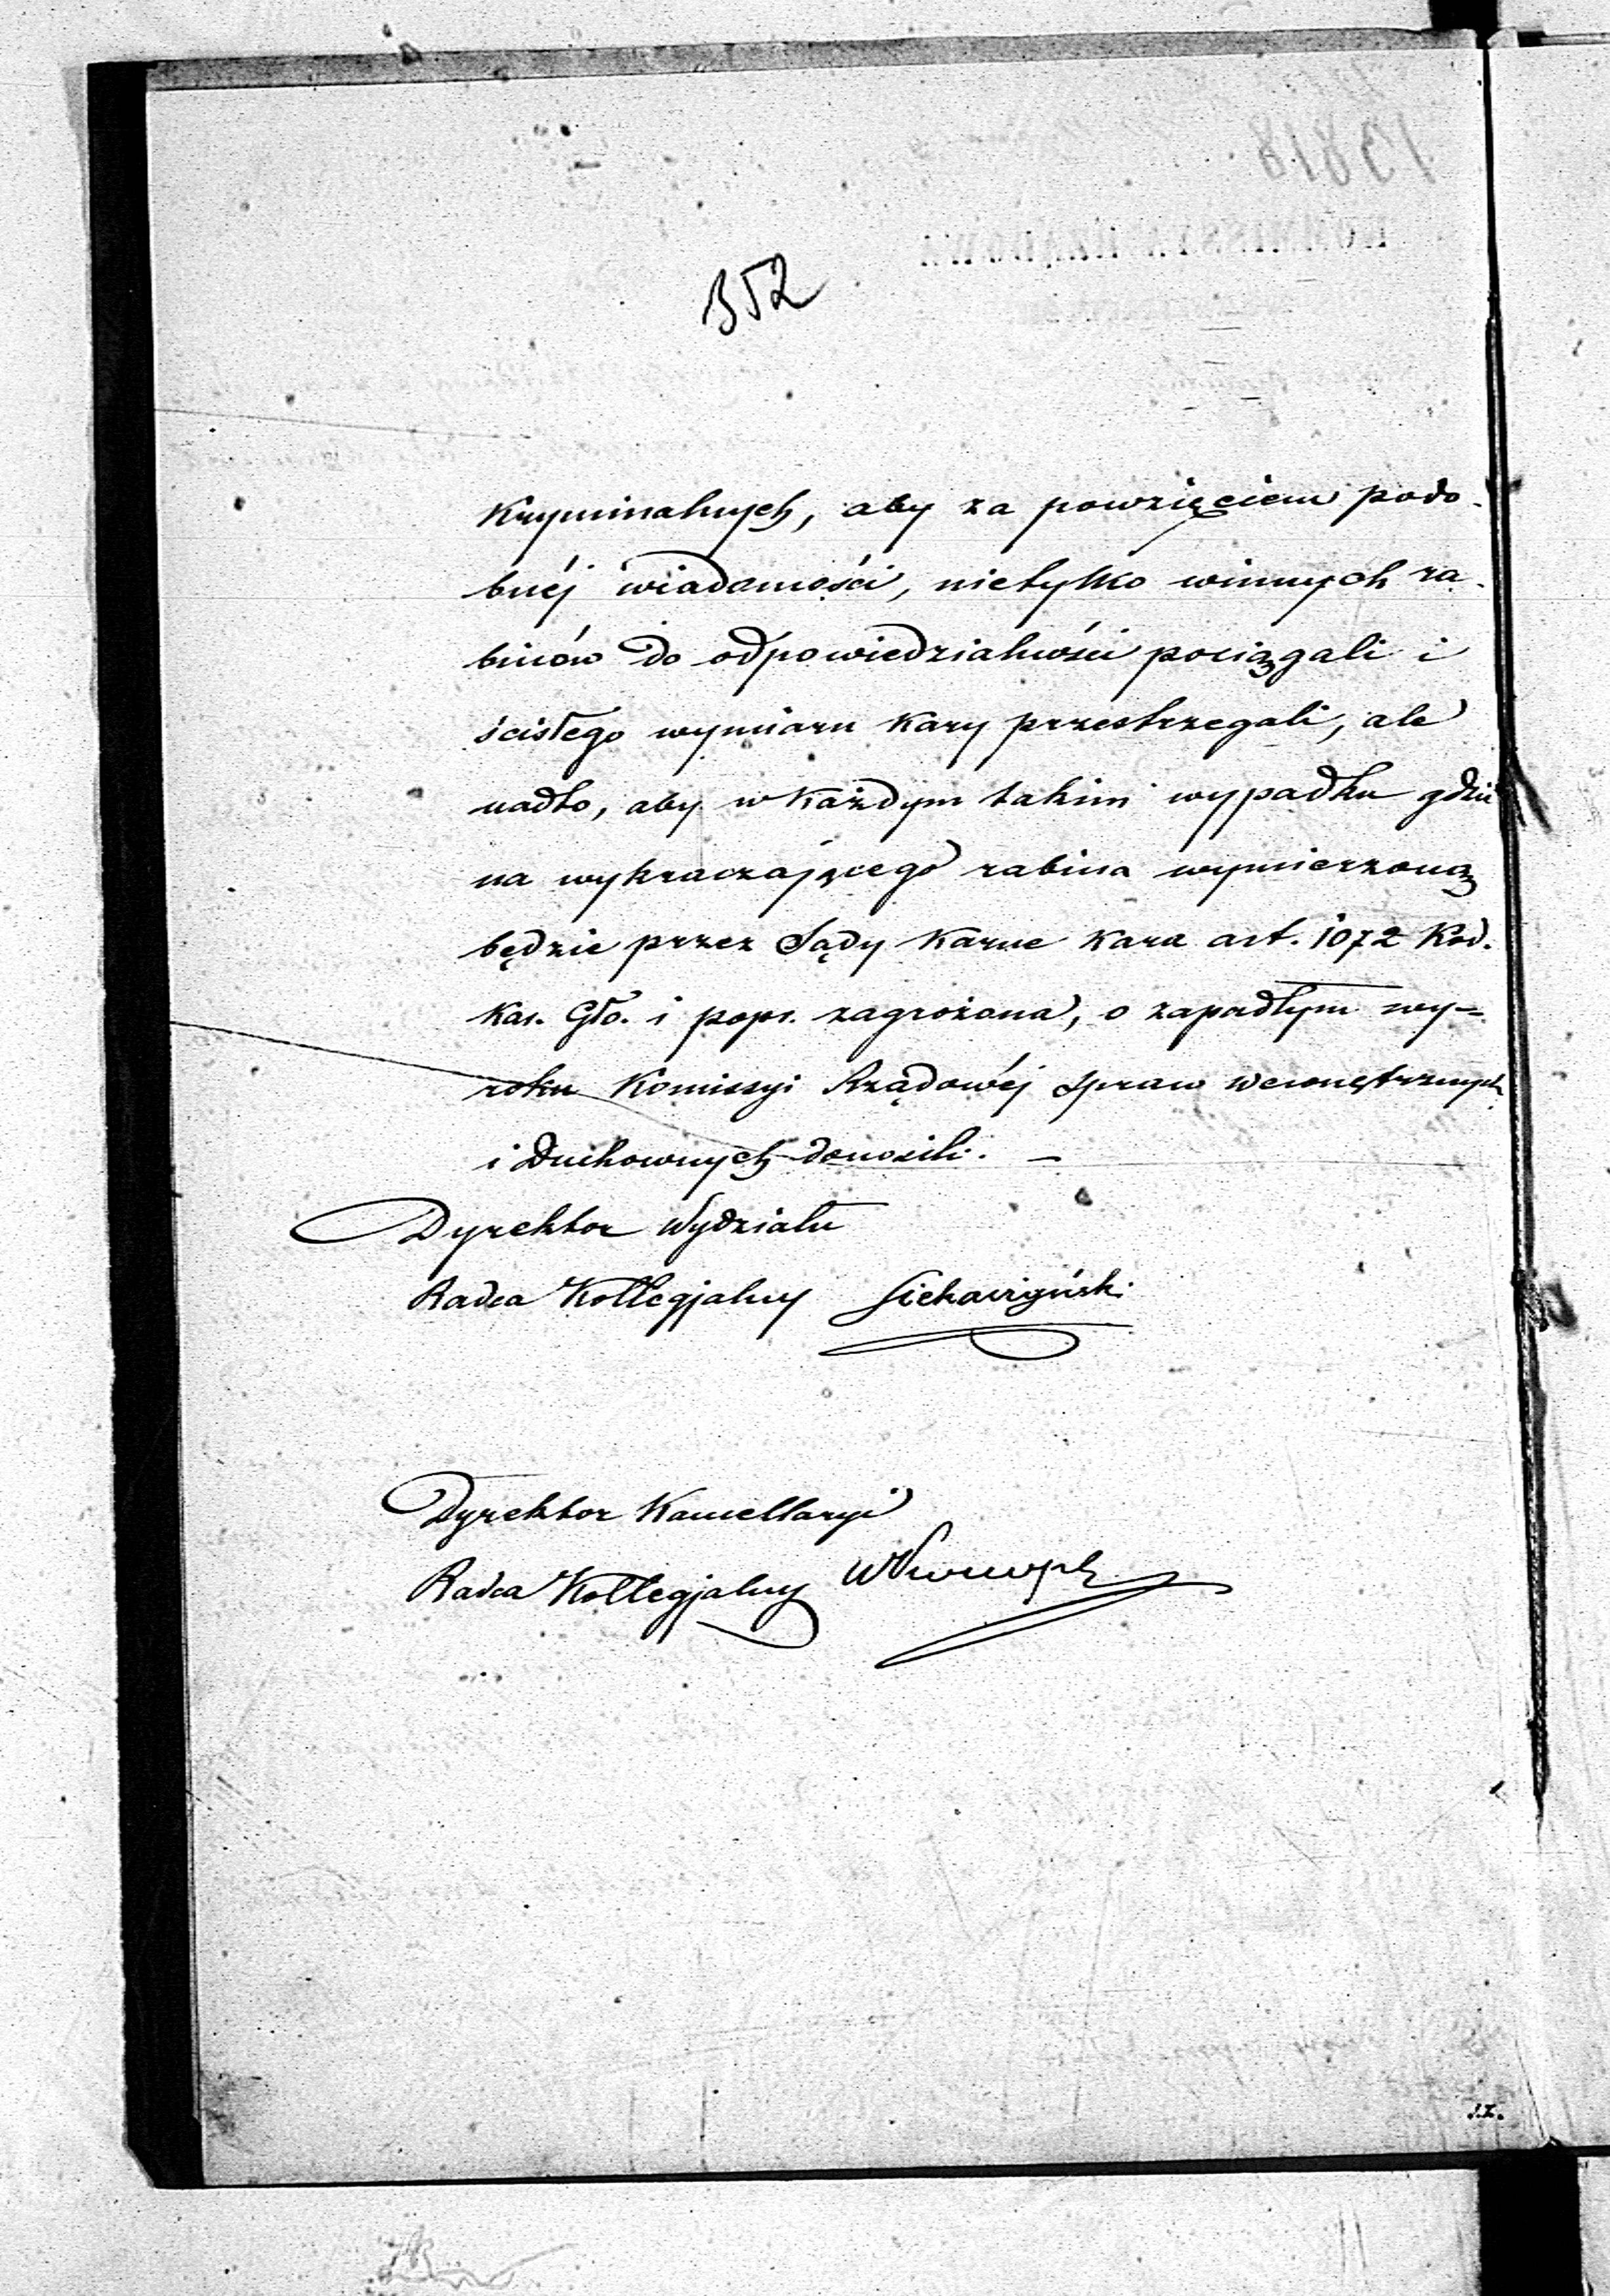 352
Kryminalnych, aby za powzięciem podo-
bnéj wiadomości, nietylko winnych ra-
binów do odpowiedzialności pociągali i
ścisłego wymiaru kary przestrzegali, ale
nadto, aby w każdym takim wypadku gdzie
na wykraczającego rabina wymierzoną
będzie przez Sądy Karne kara art. 1072 Kod.
kar. Głó. i popr. zagrożona, o zapadłym wy-
roku Komissyi Rządowéj Spraw Wewnętrznych
i Duchownych donosili. —
Dyrektor Wydziału
Radca Kollegjalny
Dyrektor Kancellaryi
Radca Kollegjalny